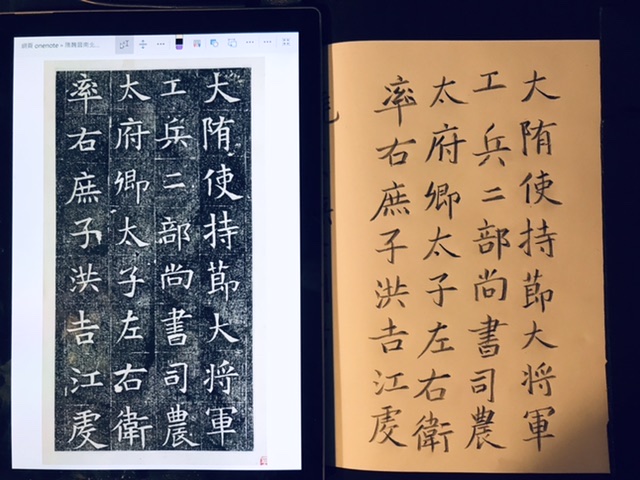 onenote
大陏使持莭大将軍
工兵二部尚書司農
太府卿太子左右衛
率右庶子洪吉江虔
大陏使持莭大将軍
工兵二部尚書司農
太府卿太子左右衛
率右庶子洪吉江虔